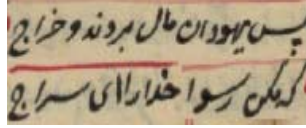 پس یهودان مال بردند و خراج
که مکن رسوا خدارا ای سراج